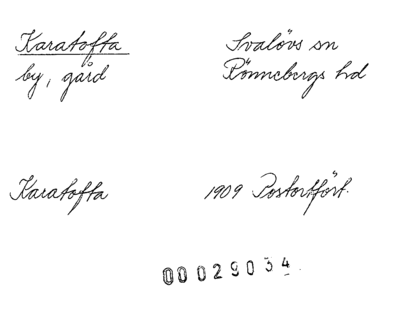 Karatofta Svalövs sn
by, gård Rönnebergs hd
Karatofta 1909 Postortfört.
00029034